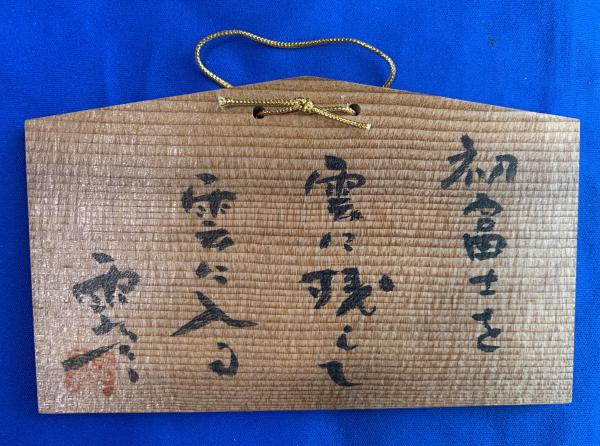 初富士を
雲に残して
雲に入る